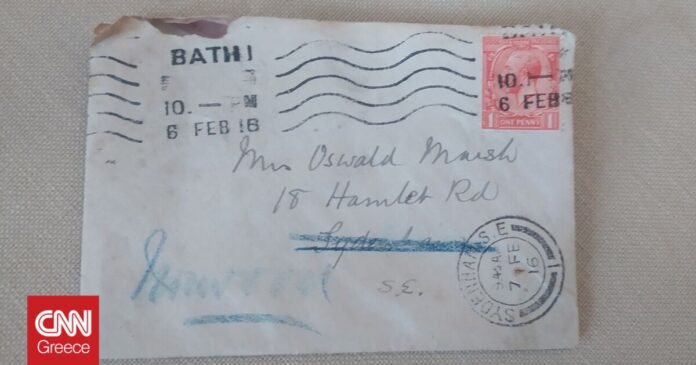 BATH
10. — PM
6 FEB 16
BATH
10. — PM
6 FEB 16
ONE PENNY
1 1
Mrs Oswald Marsh
18 Hamlet Rd
Sydenham
S.E.
Norwood
SYDENHAM. S.E.
7 FE
16
CNN
Greece